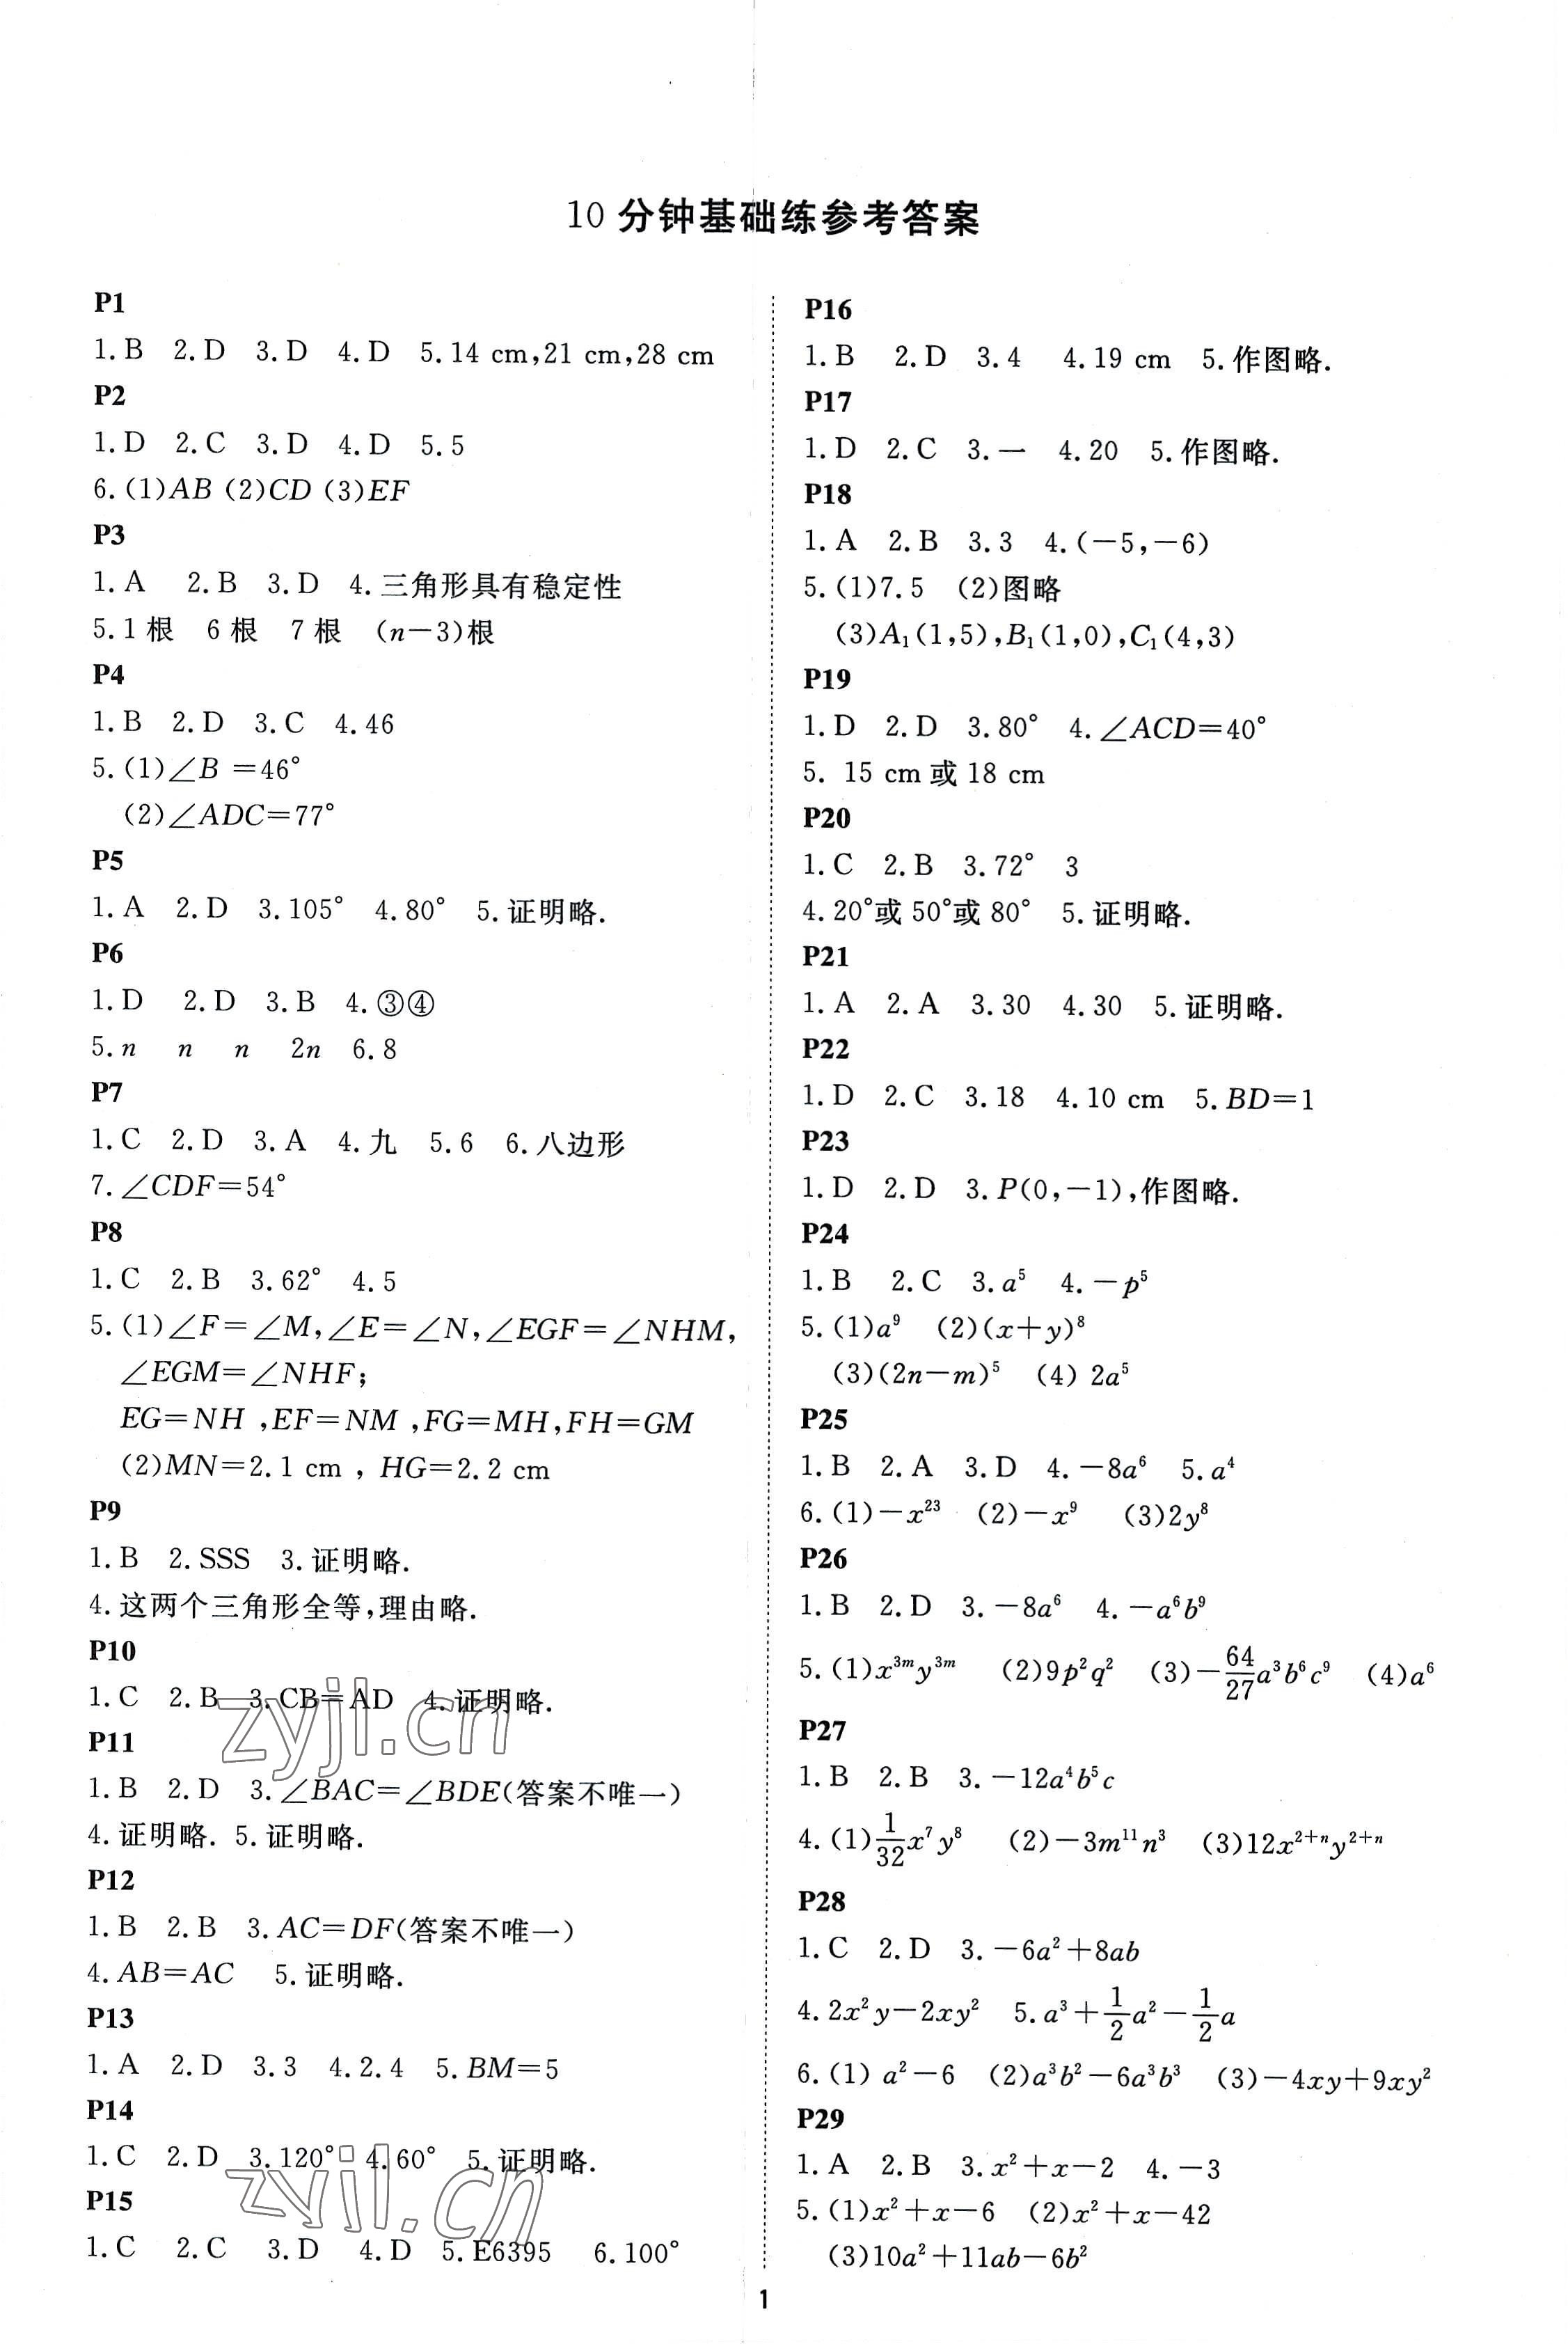 10 分钟基础练参考答案
P1
1. B 2. D 3. D 4. D 5. 14 cm,21 cm,28 cm
P2
1. D 2. C 3. D 4. D 5. 5
6. (1)AB (2)CD (3)EF
P3
1. A 2. B 3. D 4. 三角形具有稳定性
5. 1 根 6 根 7 根 (n-3)根
P4
1. B 2. D 3. C 4. 46
5. (1)∠B =46°
(2)∠ADC=77°
P5
1. A 2. D 3. 105° 4. 80° 5. 证明略.
P6
1. D 2. D 3. B 4. ③④
5. n n n 2n 6. 8
P7
1. C 2. D 3. A 4. 九 5. 6 6. 八边形
7. ∠CDF=54°
P8
1. C 2. B 3. 62° 4. 5
5. (1)∠F=∠M,∠E=∠N,∠EGF=∠NHM,
∠EGM=∠NHF;
EG=NH ,EF=NM ,FG=MH,FH=GM
(2)MN=2.1 cm , HG=2.2 cm
P9
1. B 2. SSS 3. 证明略.
4. 这两个三角形全等,理由略.
P10
1. C 2. B 3. CB=AD 4. 证明略.
P11
1. B 2. D 3. ∠BAC=∠BDE(答案不唯一)
4. 证明略. 5. 证明略.
P12
1. B 2. B 3. AC=DF(答案不唯一)
4. AB=AC 5. 证明略.
P13
1. A 2. D 3. 3 4. 2.4 5. BM=5
P14
1. C 2. D 3. 120° 4. 60° 5. 证明略.
P15
1. C 2. C 3. D 4. D 5. E6395 6. 100°
zyjl.cn
zyjl.cn
P16
1. B 2. D 3. 4 4. 19 cm 5. 作图略.
P17
1. D 2. C 3. 一 4. 20 5. 作图略.
P18
1. A 2. B 3. 3 4. (-5,-6)
5. (1)7.5 (2)图略
(3)A₁(1,5),B₁(1,0),C₁(4,3)
P19
1. D 2. D 3. 80° 4. ∠ACD=40°
5. 15 cm 或 18 cm
P20
1. C 2. B 3. 72° 3
4. 20°或 50°或 80° 5. 证明略.
P21
1. A 2. A 3. 30 4. 30 5. 证明略.
P22
1. D 2. C 3. 18 4. 10 cm 5. BD=1
P23
1. D 2. D 3. P(0,-1),作图略.
P24
1. B 2. C 3. a⁵ 4. -p⁵
5. (1)a⁹ (2)(x+y)⁸
(3)(2n-m)⁵ (4) 2a⁵
P25
1. B 2. A 3. D 4. -8a⁶ 5. a⁴
6. (1)-x²³ (2)-x⁹ (3)2y⁸
P26
1. B 2. D 3. -8a⁶ 4. -a⁶b⁹
5. (1)x³ᵐy³ᵐ (2)9p²q² (3)-64/27a³b⁶c⁹ (4)a⁶
P27
1. B 2. B 3. -12a⁴b⁵c
4. (1)1/32x⁷y⁸ (2)-3m¹¹n³ (3)12x²⁺ⁿy²⁺ⁿ
P28
1. C 2. D 3. -6a²+8ab
4. 2x²y-2xy² 5. a³+1/2a²-1/2a
6. (1) a²-6 (2)a³b²-6a³b³ (3)-4xy+9xy²
P29
1. A 2. B 3. x²+x-2 4. -3
5. (1)x²+x-6 (2)x²+x-42
(3)10a²+11ab-6b²
1